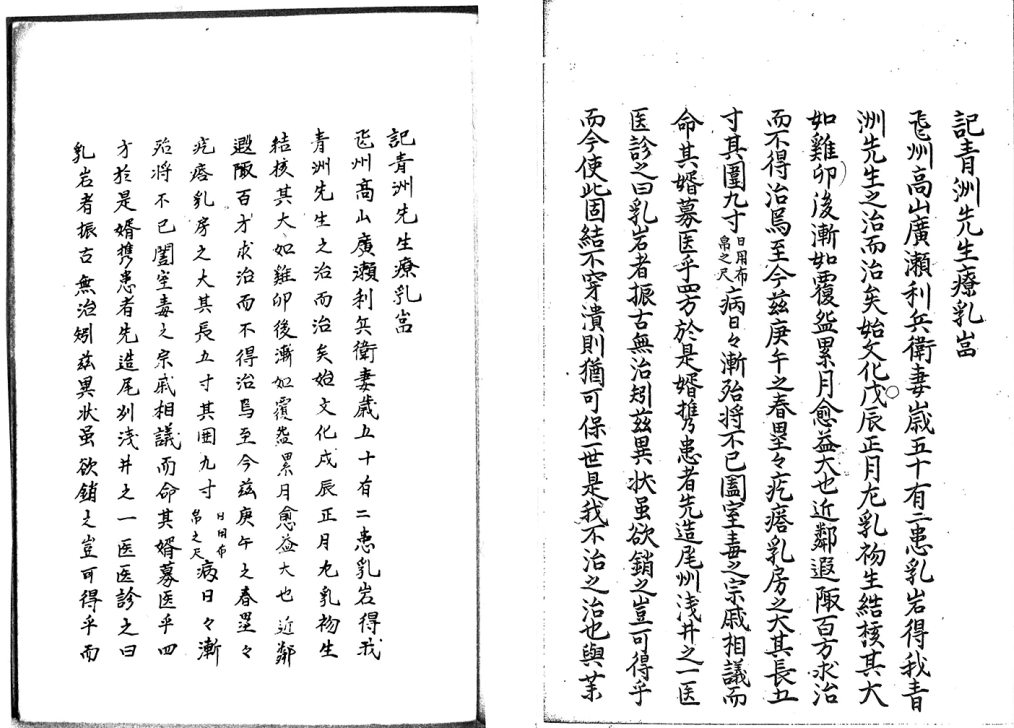 記青洲先生療乳嵓
飛州高山廣瀬利兵衛妻歳五十有二患乳岩得我青
洲先生之治而治矣始文化戊辰正月左乳初生結核其大
如雞卵後漸如覆盆累月愈益大也近鄰遐陬百方求治
而不得治焉至今茲庚午之春塁々疙瘩乳房之大其長五
寸其圍九寸日用布帛之尺病日々漸殆将不已闔室毒之宗戚相議而
命其婿募医乎四方於是婿携患者先造尾州浅井之一医
医診之曰乳岩者振古無治矧茲異状虽欲銷之豈可得乎
而今使此固結不穿潰則猶可保一世是我不治之治也與某
記青洲先生療乳嵓
飛州高山廣瀬利兵衛妻歳五十有二患乳岩得我
青洲先生之治而治矣始文化戊辰正月左乳初生
結核其大如雞卵後漸如覆盆累月愈益大也近鄰
遐陬百方求治而不得治焉至今茲庚午之春塁々
疙瘩乳房之大其長五寸其囲九寸日用布帛之尺病日々漸
殆将不已闔室毒之宗戚相議而命其婿募医乎四
方於是婿携患者先造尾州浅井之一医医診之曰
乳岩者振古無治矧茲異状虽欲銷之豈可得乎而